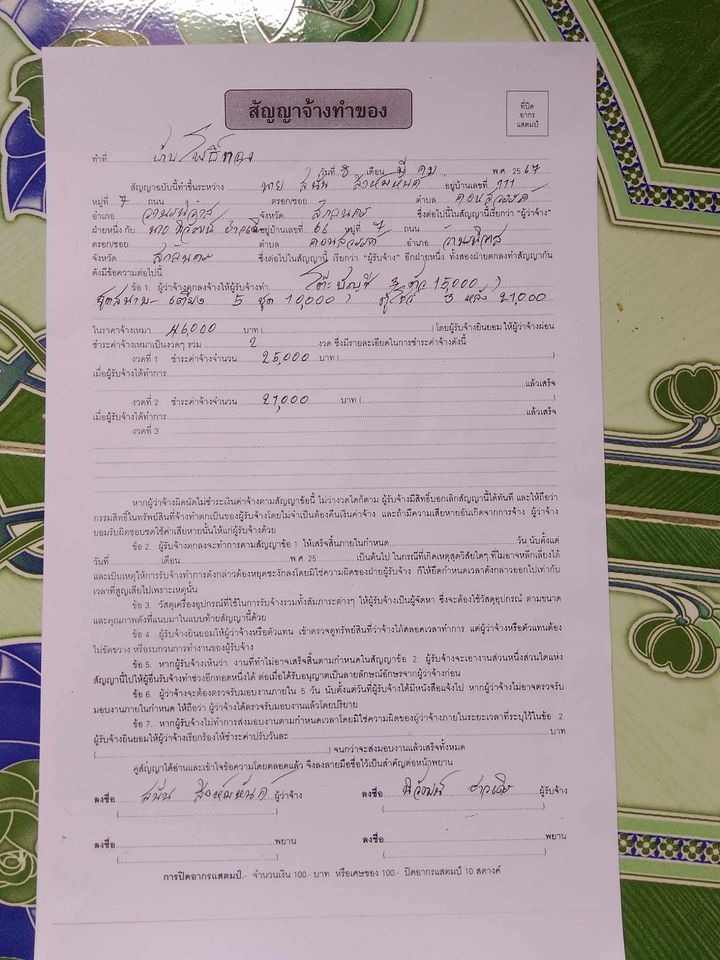 สัญญาจ้างทำของ
ที่ปิด
อากร
แสตมป์
ทำที่ บ้านโพธิ์ทอง
วันที่ 8 เดือน มี.ค. พ.ศ. 2567
สัญญาฉบับนี้ทำขึ้นระหว่าง นาย สนั่น สิงห์มหันต์ อยู่บ้านเลขที่ 111
หมู่ที่ 7 ถนน ตรอก/ซอย ตำบล คอนสวรรค์
อำเภอ วานรนิวาส จังหวัด สกลนคร ซึ่งต่อไปในสัญญานี้เรียกว่า "ผู้ว่าจ้าง"
ฝ่ายหนึ่ง กับ นาย นิวัฒน์ อยู่บ้านเลขที่ 66 หมู่ที่ 7 ถนน
ตรอก/ซอย ตำบล คอนสวรรค์ อำเภอ วานรนิวาส
จังหวัด สกลนคร ซึ่งต่อไปในสัญญานี้ เรียกว่า "ผู้รับจ้าง" อีกฝ่ายหนึ่ง ทั้งสองฝ่ายตกลงทำสัญญากัน
ดังมีข้อความต่อไปนี้
ข้อ 1. ผู้ว่าจ้างตกลงจ้างให้ผู้รับจ้างทำ โต๊ะ บัญชี 3 ตัว 15,000 )
ชุดสนาม - เตียง 5 ชุด 10,000 ) ตู้โชว์ 3 หลัง 21,000
ในราคาจ้างเหมา 46,000 บาท ( ) โดยผู้รับจ้างยินยอม ให้ผู้ว่าจ้างผ่อน
ชำระค่าจ้างเหมาเป็นงวดๆ รวม 2 งวด ซึ่งมีรายละเอียดในการชำระค่าจ้างดังนี้
งวดที่ 1 ชำระค่าจ้างจำนวน 25,000 บาท ( )
เมื่อผู้รับจ้างได้ทำการ
แล้วเสร็จ
งวดที่ 2 ชำระค่าจ้างจำนวน 21,000 บาท ( )
เมื่อผู้รับจ้างได้ทำการ แล้วเสร็จ
งวดที่ 3
หากผู้ว่าจ้างผิดนัดไม่ชำระเงินค่าจ้างตามสัญญาข้อนี้ ไม่ว่างวดใดก็ตาม ผู้รับจ้างมีสิทธิ์บอกเลิกสัญญานี้ได้ทันที และให้ถือว่า
กรรมสิทธิ์ในทรัพย์สินที่จ้างทำตกเป็นของผู้รับจ้างโดยไม่จำเป็นต้องคืนเงินค่าจ้าง และถ้ามีความเสียหายอันเกิดจากการจ้าง ผู้ว่าจ้าง
ยอมรับผิดชอบชดใช้ค่าเสียหายนั้นให้แก่ผู้รับจ้างด้วย
ข้อ 2. ผู้รับจ้างตกลงจะทำการตามสัญญาข้อ 1. ให้เสร็จสิ้นภายในกำหนด วัน นับตั้งแต่
วันที่ เดือน พ.ศ. 25 เป็นต้นไป ในกรณีที่เกิดเหตุสุดวิสัยใดๆ ที่ไม่อาจหลีกเลี่ยงได้
และเป็นเหตุให้การรับจ้างทำการดังกล่าวต้องหยุดชะงักลงโดยมิใช่ความผิดของฝ่ายผู้รับจ้าง ก็ให้ยืดกำหนดเวลาดังกล่าวออกไปเท่ากับ
เวลาที่สูญเสียไปเพราะเหตุนั้น
ข้อ 3. วัสดุเครื่องอุปกรณ์ที่ใช้ในการรับจ้างรวมทั้งสัมภาระต่างๆ ให้ผู้รับจ้างเป็นผู้จัดหา ซึ่งจะต้องใช้วัสดุอุปกรณ์ ตามขนาด
และคุณภาพดังที่แนบมาในแบบท้ายสัญญานี้ด้วย
ข้อ 4. ผู้รับจ้างยินยอมให้ผู้ว่าจ้างหรือตัวแทน เข้าตรวจดูทรัพย์สินที่ว่าจ้างได้ตลอดเวลาทำการ แต่ผู้ว่าจ้างหรือตัวแทนต้อง
ไม่ขัดขวาง หรือรบกวนการทำงานของผู้รับจ้าง
ข้อ 5. หากผู้รับจ้างเห็นว่า งานที่ทำไม่อาจเสร็จสิ้นตามกำหนดในสัญญาข้อ 2. ผู้รับจ้างจะเอางานส่วนหนึ่งส่วนใดแห่ง
สัญญานี้ไปให้ผู้อื่นรับจ้างทำช่วงอีกทอดหนึ่งได้ ต่อเมื่อได้รับอนุญาตเป็นลายลักษณ์อักษรจากผู้ว่าจ้างก่อน
ข้อ 6. ผู้ว่าจ้างจะต้องตรวจรับมอบงานภายใน 5 วัน นับตั้งแต่วันที่ผู้รับจ้างได้มีหนังสือแจ้งไป หากผู้ว่าจ้างไม่อาจตรวจรับ
มอบงานภายในกำหนด ให้ถือว่า ผู้ว่าจ้างได้ตรวจรับมอบงานแล้วโดยปริยาย
ข้อ 7. หากผู้รับจ้างไม่ทำการส่งมอบงานตามกำหนดเวลาโดยมิใช่ความผิดของผู้ว่าจ้างภายในระยะเวลาที่ระบุไว้ในข้อ 2.
ผู้รับจ้างยินยอมให้ผู้ว่าจ้างเรียกร้องให้ชำระค่าปรับวันละ บาท
( ) จนกว่าจะส่งมอบงานแล้วเสร็จทั้งหมด
คู่สัญญาได้อ่านและเข้าใจข้อความโดยตลอดแล้ว จึงลงลายมือชื่อไว้เป็นสำคัญต่อหน้าพยาน
ลงชื่อ สนั่น สิงห์มหันต์ ผู้ว่าจ้าง ลงชื่อ นิวัฒน์ ผู้รับจ้าง
( ) ( )
ลงชื่อ พยาน ลงชื่อ พยาน
( ) ( )
การปิดอากรแสตมป์.- จำนวนเงิน 100.- บาท หรือเศษของ 100.- ปิดอากรแสตมป์ 10 สตางค์